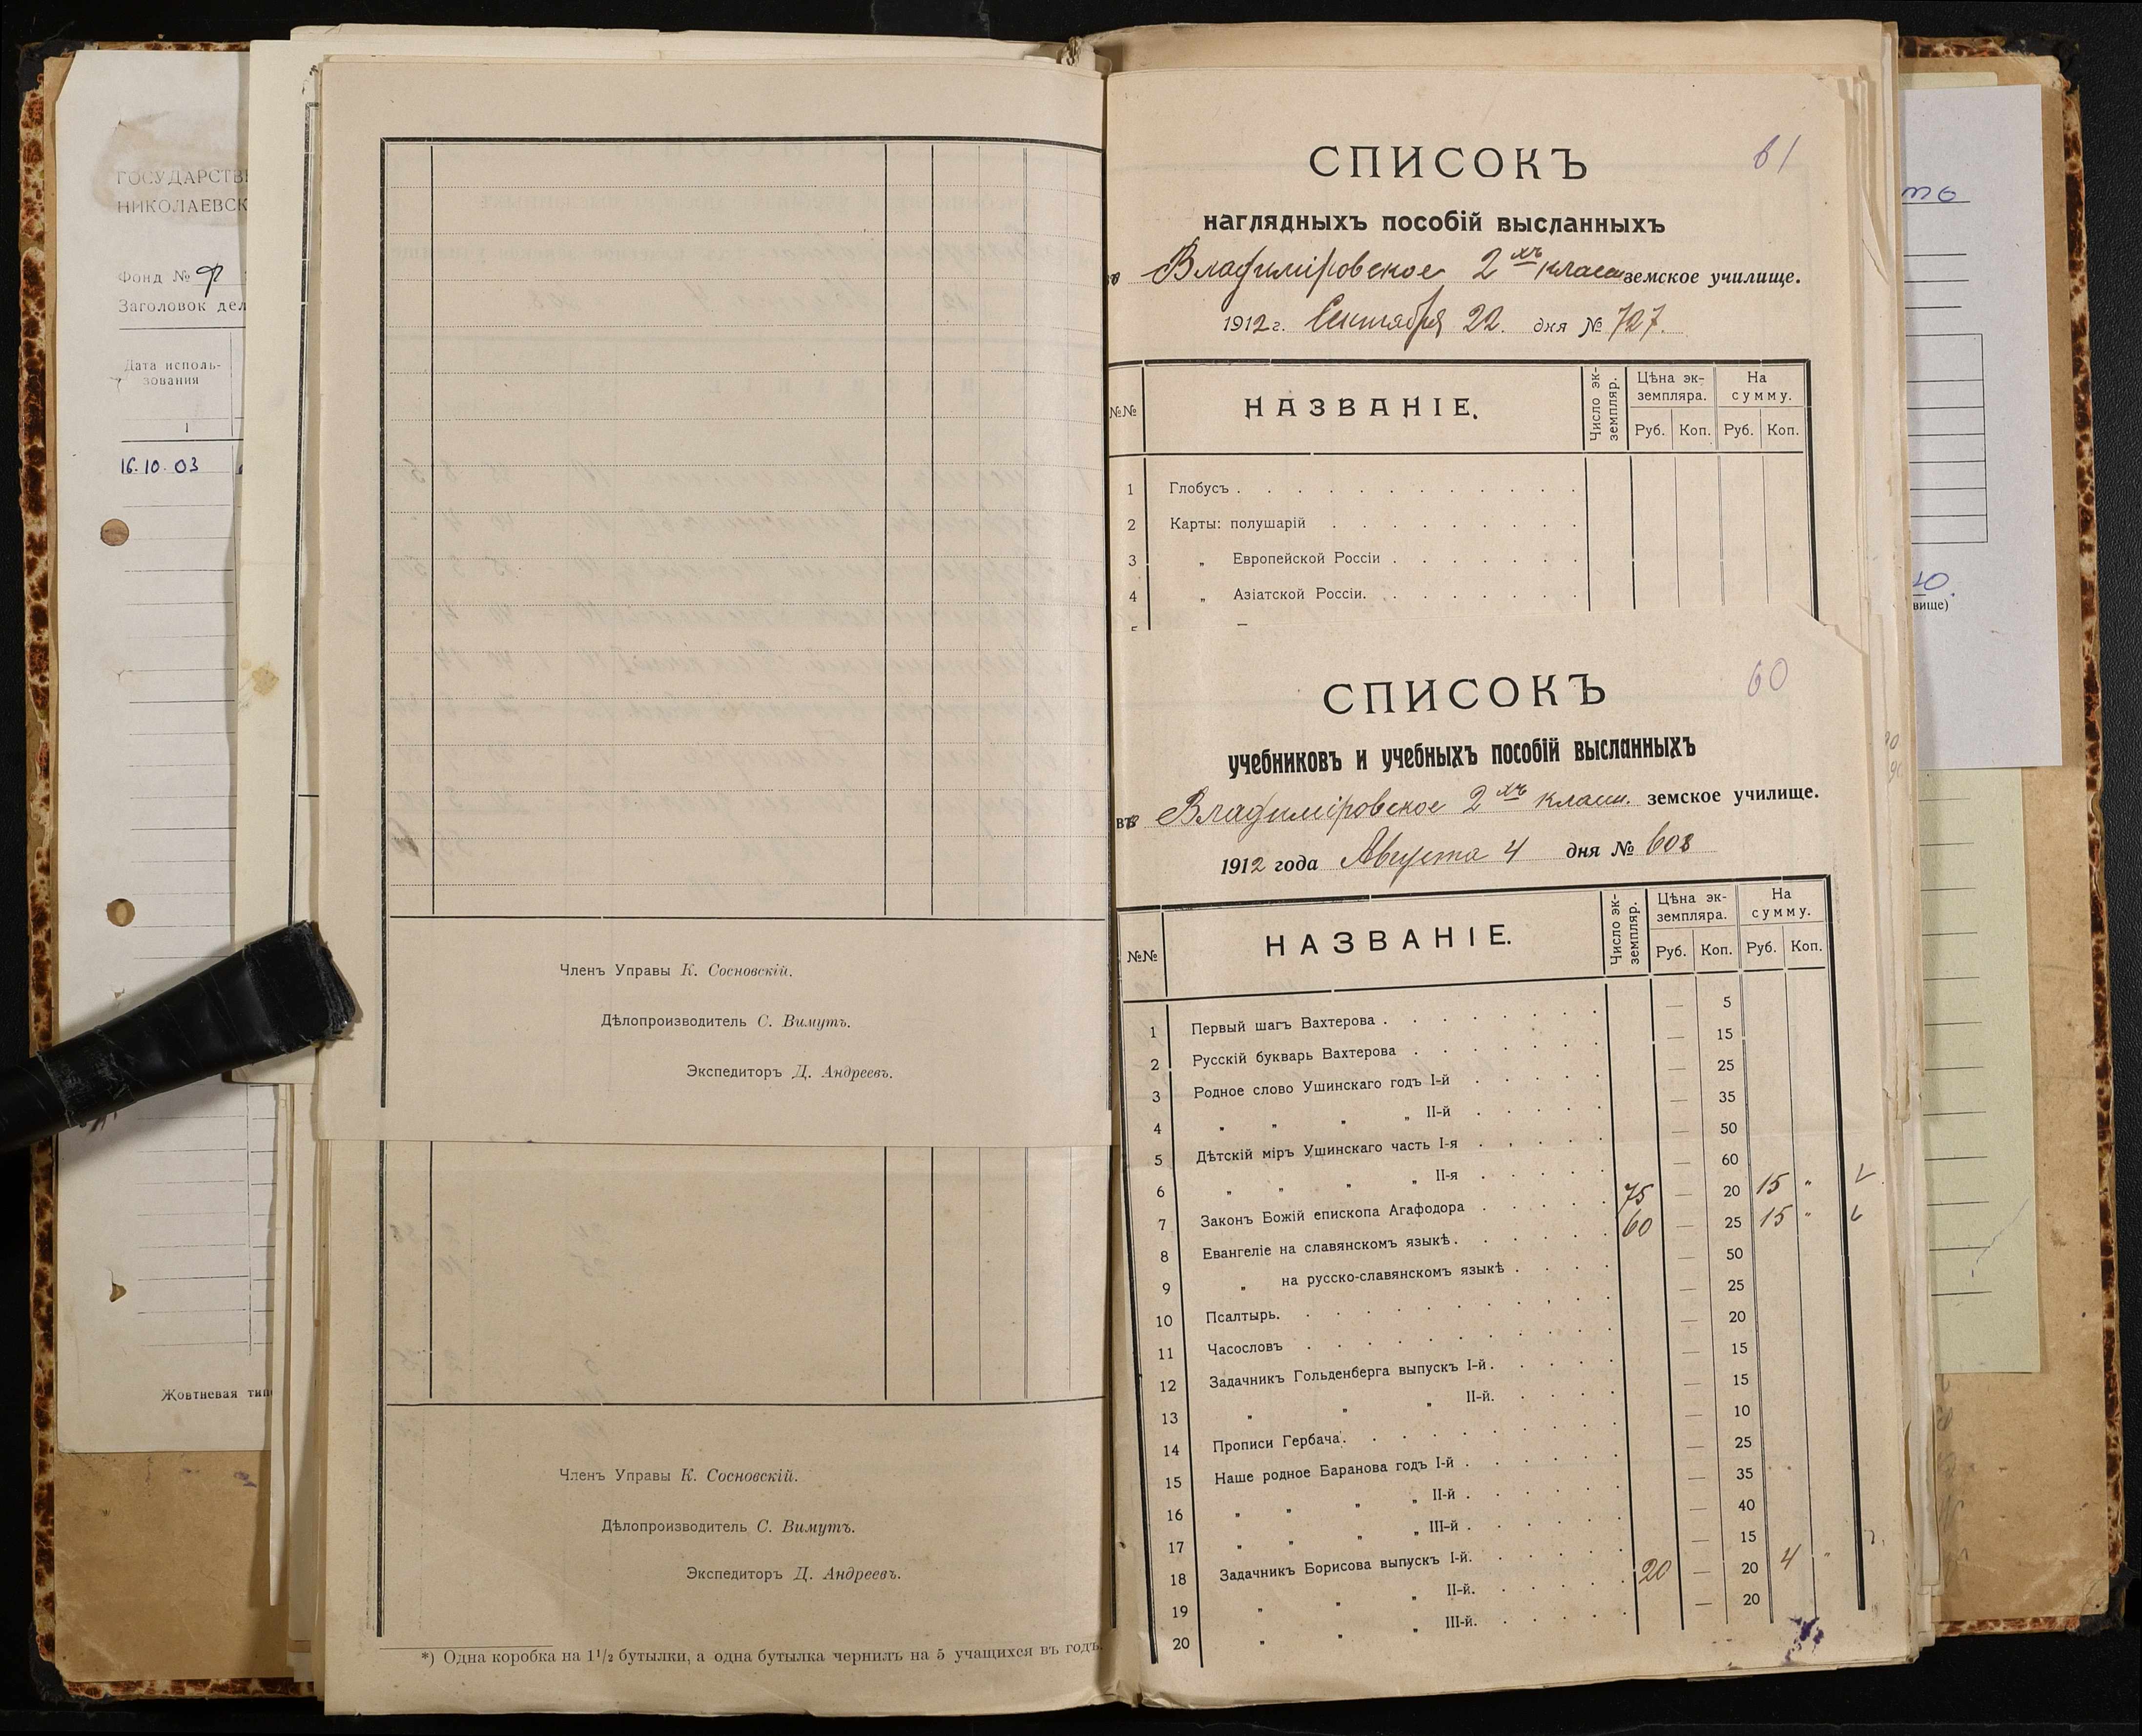 ГОСУДАРСТВ
НИКОЛАЕВСК
Фонд №
Заголовок дел
Дата исполь-
зования
1
16.10.03
Жовтневая тип
Членъ Управы К. Сосновскій.
Дѣлопроизводитель С. Вимутъ.
Экспедиторъ Д. Андреевъ.
Членъ Управы К. Сосновскій.
Дѣлопроизводитель С. Вимутъ.
Экспедиторъ Д. Андреевъ.
*) Одна коробка на 1 1/2 бутылки, а одна бутылка чернилъ на 5 учащихся въ годъ.
61
СПИСОКЪ
наглядныхъ пособій высланныхъ
Владиміровское 2 хъ класс земское училище.
1912 г. Сентября 22. дня № 727.
№№ НАЗВАНІЕ. Число эк-земпляр. Цѣна эк-земпляра. На сумму.
Руб. Коп. Руб. Коп.
1 Глобусъ
2 Карты: полушарій
3 „ Европейской Россіи
4 „ Азіатской Россіи.
60
СПИСОКЪ
учебниковъ и учебныхъ пособій высланныхъ
въ Владиміровское 2 хъ класс. земское училище.
1912 года Августа 4 дня № 603
№№ НАЗВАНІЕ. Число эк-земпляр. Цѣна эк-земпляра. На сумму.
Руб. Коп. Руб. Коп.
1 Первый шагъ Вахтерова — 5
2 Русскій букварь Вахтерова — 15
3 Родное слово Ушинскаго годъ I-й — 25
4 „ „ „ „ II-й — 35
5 Дѣтскій міръ Ушинскаго часть I-я — 50
6 „ „ „ „ II-я — 60
7 Законъ Божій епископа Агафодора 75 — 20 15 „
8 Евангеліе на славянскомъ языкѣ. 60 — 25 15 „
9 „ на русско-славянскомъ языкѣ — 50
10 Псалтырь. — 25
11 Часословъ — 20
12 Задачникъ Гольденберга выпускъ I-й. — 15
13 „ „ „ II-й. — 15
14 Прописи Гербача. — 10
15 Наше родное Баранова годъ I-й — 25
16 „ „ „ „ II-й — 35
17 „ „ „ „ III-й — 40
18 Задачникъ Борисова выпускъ I-й. — 15
19 „ „ „ II-й. 20 — 20 4 „
20 „ „ „ III-й. — 20
вище)